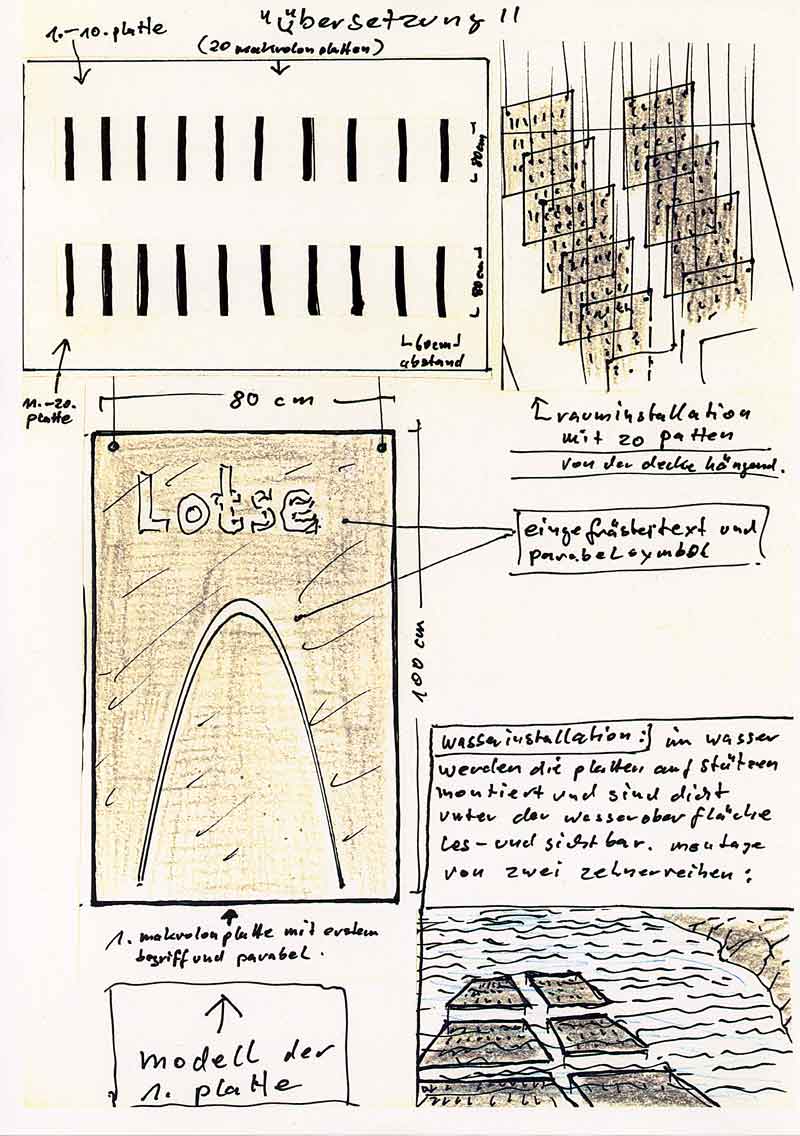 "Übersetzung"
(20 makrolonplatten)
1.-10. platte
80cm
80cm
60cm
abstand
11.-20.
platte
rauminstallation
mit 20 patten
von der decke hängend.
80 cm
Lotse
eingefräster text und
parabelsymbol
100 cm
wasserinstallation: im wasser
werden die platten auf stützen
montiert und sind dicht
unter der wasseroberfläche
les- und sichtbar. montage
von zwei zehnerreihen:
1. makrolonplatte mit erstem
begriff und parabel.
modell der
1. platte